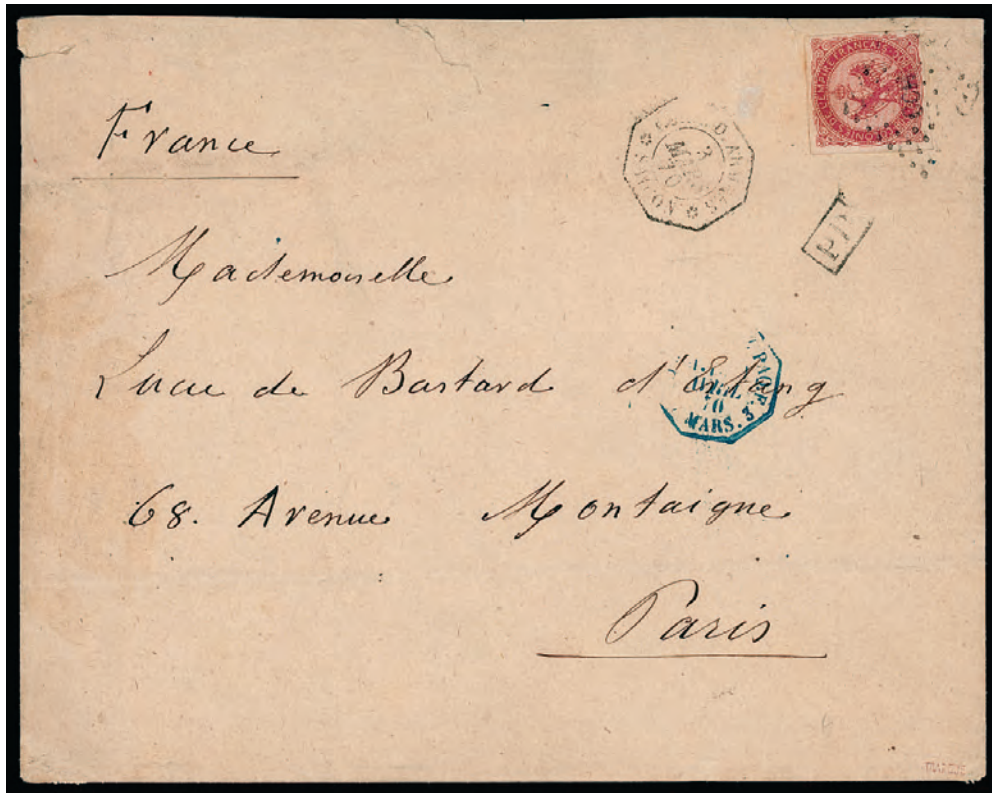 France
EMPIRE FRANÇAIS
3
MARS
70
PP
Mademoiselle
Lucie de Bastard d'Estang
70
MARS. 3.
68. Avenue Montaigne
Paris